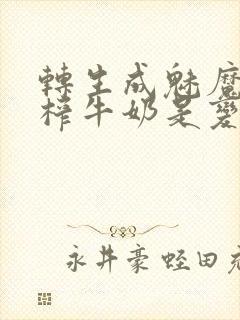 轉生成魅魔
榨牛奶是變
永井豪 蛭田充